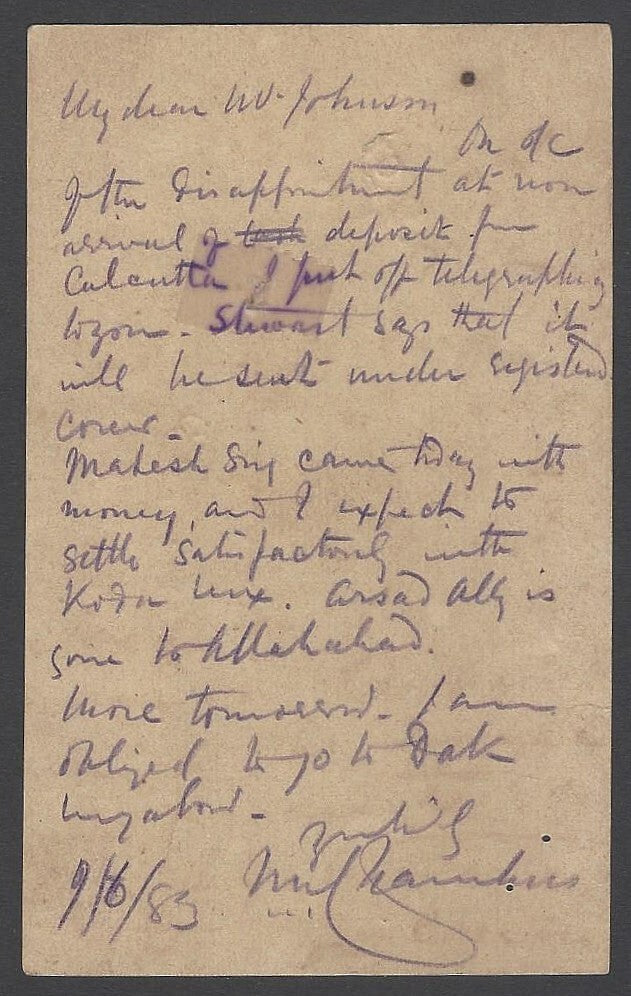 My dear Mr Johnson
On a/c
of the disappointment at non
arrival of deposit from
Calcutta I put off telegraphing
to you - Stewart says that it
will be sent under registered
cover -
Mahesh Sing came today with
money, and I expect to
settle satisfactorily with
Koda Bux. Arsad Ally is
gone to Allahabad.
More tomorrow - I am
obliged to go to Dak
-
9/6/83